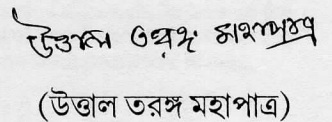 উত্তাল তরঙ্গ মহাপাত্র
(উত্তাল তরঙ্গ মহাপাত্র)